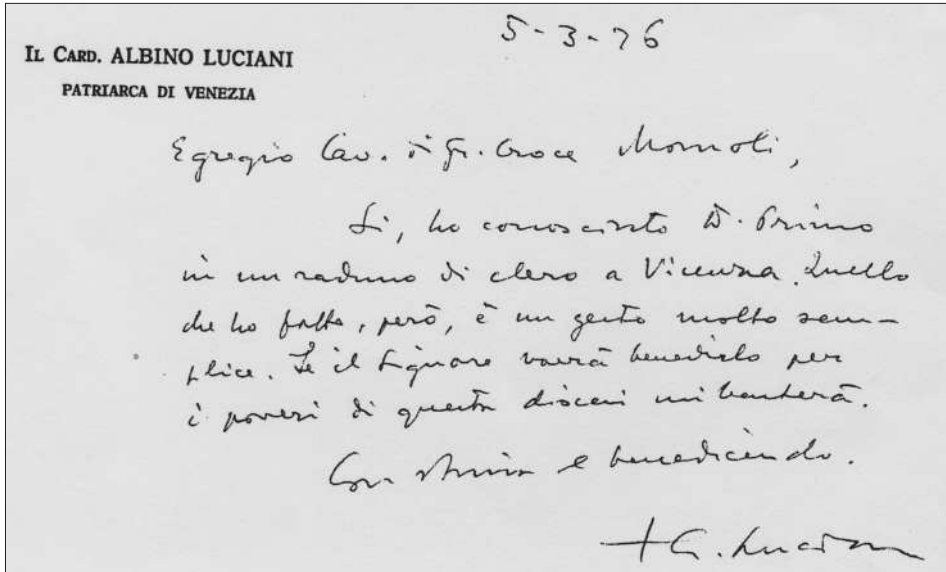 5-3-76
IL CARD. ALBINO LUCIANI
PATRIARCA DI VENEZIA
Egregio Cav. di Gr. Croce Momoli,
Si, ho conosciuto D. Primo
in un raduno di clero a Vicenza. Quello
che ho fatto, però, è un gesto molto sem-
plice. Se il Signore vorrà benedirlo per
i poveri di questa diocesi mi basterà.
Con stima e benedicendo.
+ A. Luciani